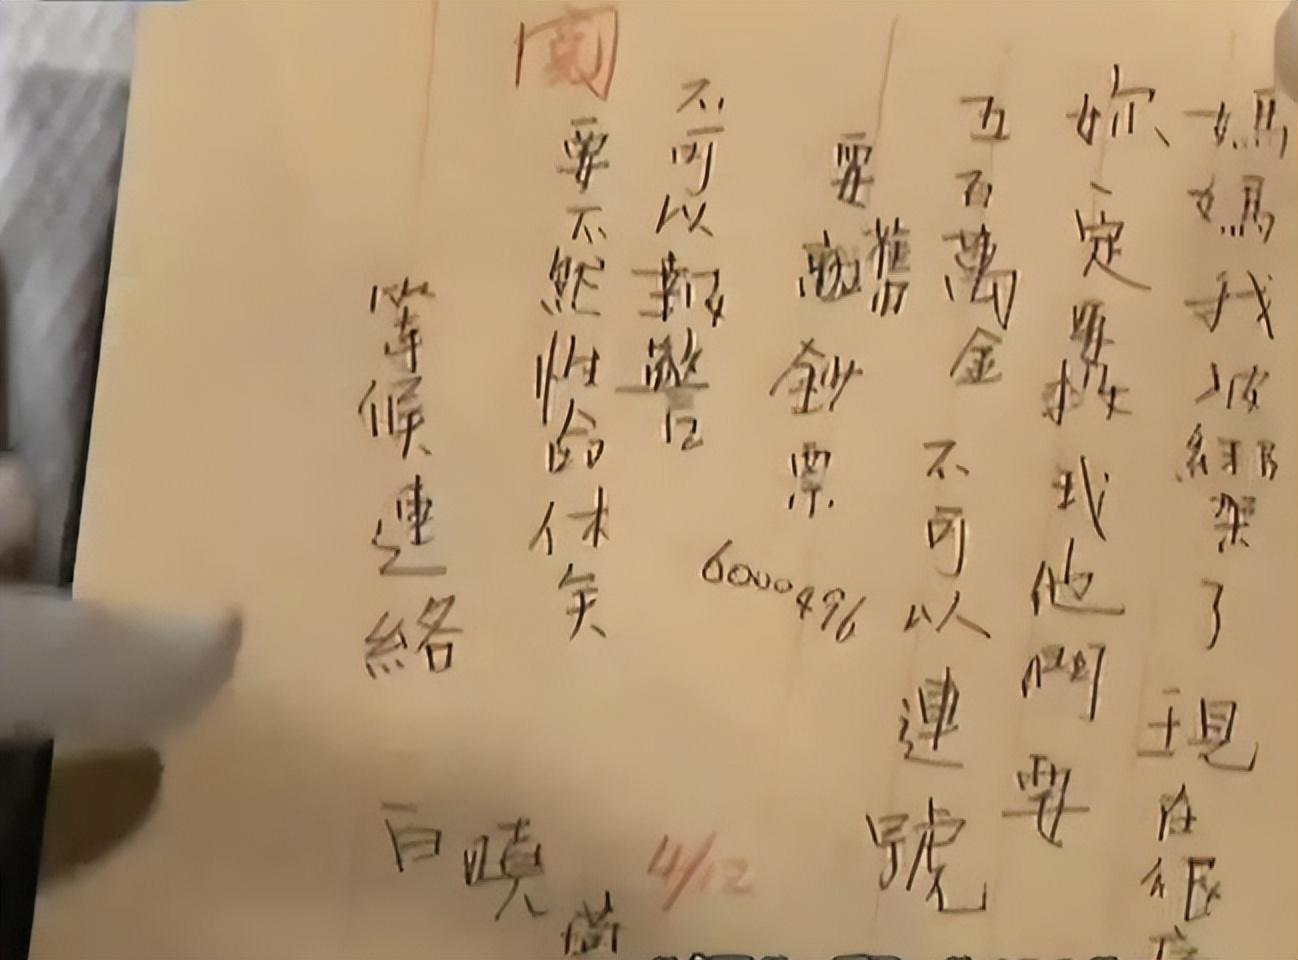 媽媽我被綁架了 現在很
妳一定要救我他門要
五百萬金 不可以連號
要舊鈔票
6000496
不可以報警
要不然性命休矣
等候連絡
白曉
4/12